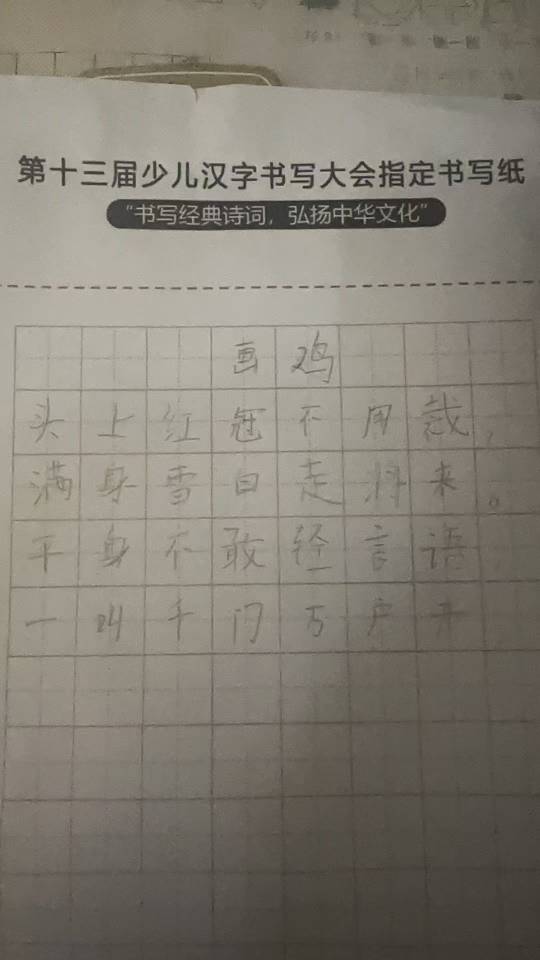 第十三届少儿汉字书写大会指定书写纸
“书写经典诗词，弘扬中华文化”
画鸡
头上红冠不用裁，
满身雪白走将来。
干身不敢轻言语
一叫千门万户开